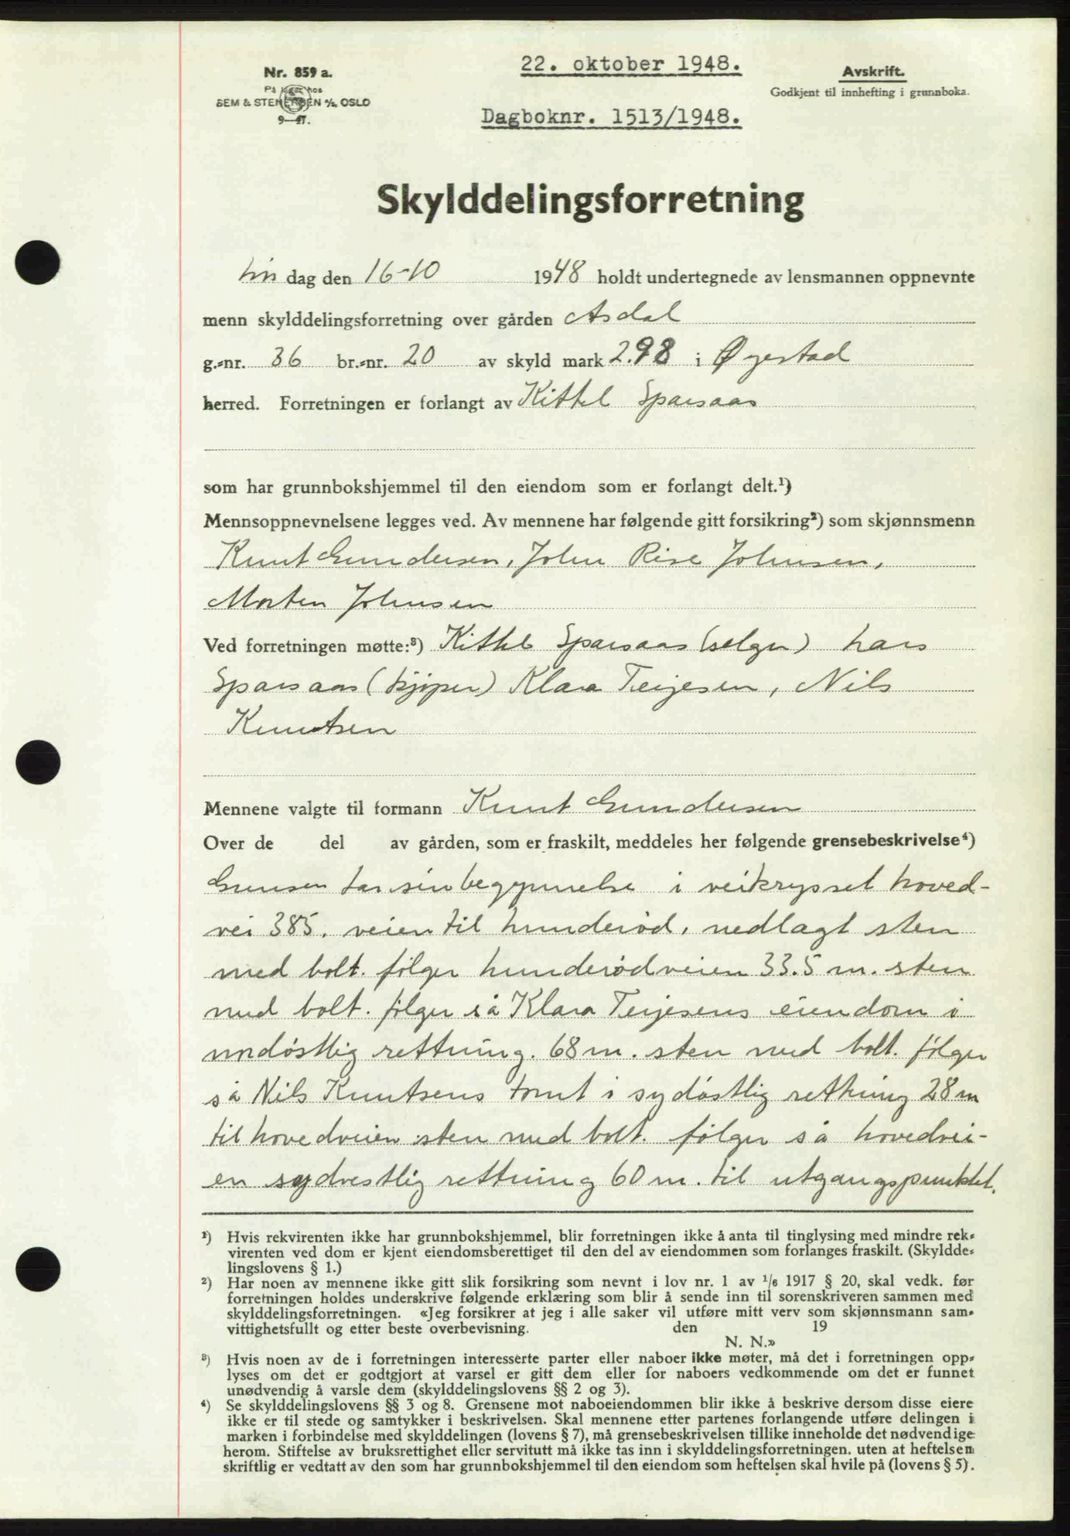 Nr. 859 a.
På lager hos
SEM & STENERSEN A/S, OSLO
9—47.
22. oktober 1948.
Dagboknr. 1513/1948.
Avskrift.
Godkjent til innhefting i grunnboka.
Skylddelingsforretning
dag den 16-10 1948 holdt undertegnede av lensmannen oppnevnte
menn skylddelingsforretning over gården Asdal
g.-nr. 36 br.-nr. 20 av skyld mark 2.98 i Øyestad
herred. Forretningen er forlangt av Kittel Sparsaas
som har grunnbokshjemmel til den eiendom som er forlangt delt.¹)
Mennsoppnevnelsene legges ved. Av mennene har følgende gitt forsikring²) som skjønnsmenn
Knut Gundersen, John Rise Johnsen,
Morten Johnsen
Ved forretningen møtte:³) Kittel Sparsaas (selger) Lars
Sparsaas (kjøper) Klara Terjesen, Nils
Knutsen
Mennene valgte til formann Knut Gundersen
Over de del av gården, som er fraskilt, meddeles her følgende grensebeskrivelse⁴)
Grensen tar sin begynnelse i veikrysset hoved-
vei 385. veien til hunderød, nedlagt sten
med bolt. følger hunderødveien 33.5 m. sten
med bolt. følger så Klara Terjesens eiendom i
nordøstlig rettning. 68 m. sten med bolt. følger
så Nils Knutsens tomt i sydøstlig rettning 28 m
til hovedveien sten med bolt. følger så hovedvei-
en sydvestlig rettning 60 m. til utgangspunktet.
¹) Hvis rekvirenten ikke har grunnbokshjemmel, blir forretningen ikke å anta til tinglysing med mindre rek-
virenten ved dom er kjent eiendomsberettiget til den del av eiendommen som forlanges fraskilt. (Skyldde-
lingslovens § 1.)
²) Har noen av mennene ikke gitt slik forsikring som nevnt i lov nr. 1 av 1/6 1917 § 20, skal vedk. før
forretningen holdes underskrive følgende erklæring som blir å sende inn til sorenskriveren sammen med
skylddelingsforretningen. «Jeg forsikrer at jeg i alle saker vil utføre mitt verv som skjønnsmann sam-
vittighetsfullt og etter beste overbevisning. den 19
N. N.»
³) Hvis noen av de i forretningen interesserte parter eller naboer ikke møter, må det i forretningen opp-
lyses om det er godtgjort at varsel er gitt dem eller for naboers vedkommende om det er funnet
unødvendig å varsle dem (skylddelingslovens §§ 2 og 3).
⁴) Se skylddelingslovens §§ 3 og 8. Grensene mot naboeiendommen blir ikke å beskrive dersom disse eiere
ikke er til stede og samtykker i beskrivelsen. Skal mennene etter partenes forlangende utføre delingen i
marken i forbindelse med skylddelingen (lovens § 7), må grensebeskrivelsen tillike inneholde det nødvendige
herom. Stiftelse av bruksrettighet eller servitutt må ikke tas inn i skylddelingsforretningen. uten at heftelsen
skriftlig er vedtatt av den som har grunnbokshjemmel til den eiendom som heftelsen skal hvile på (lovens § 5).